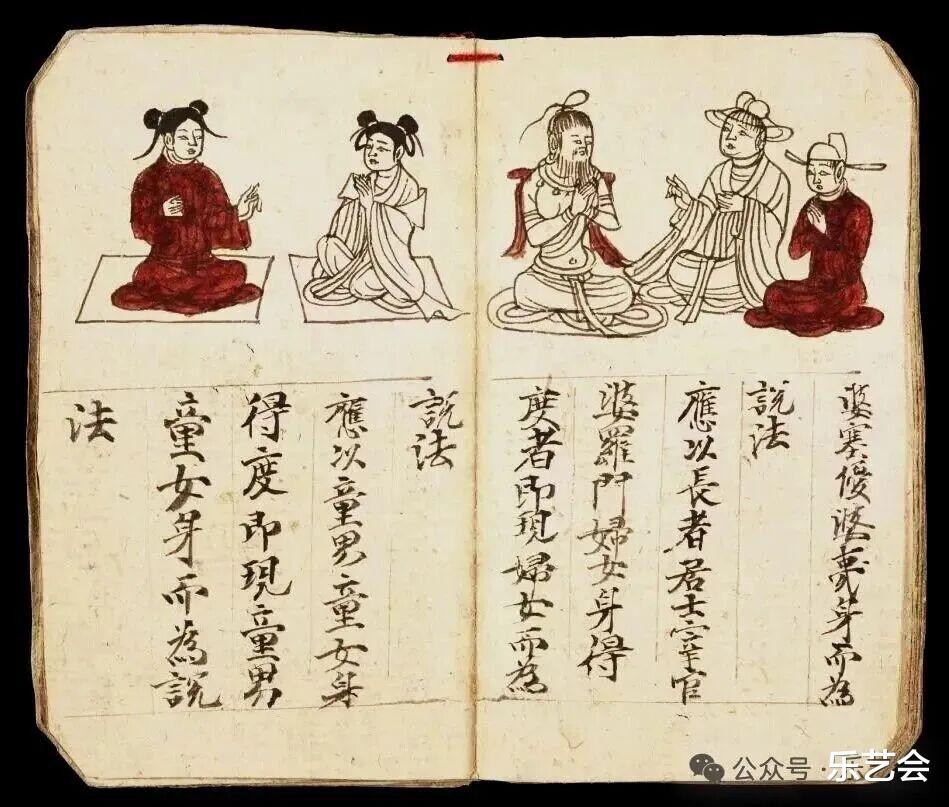 婆塞優婆夷身而為
說法
應以長者居士宰官
婆羅門婦女身得
度者即現婦女而為
說法
應以童男童女身
得度即現童男
童女身而為說
法
公众号·乐艺会